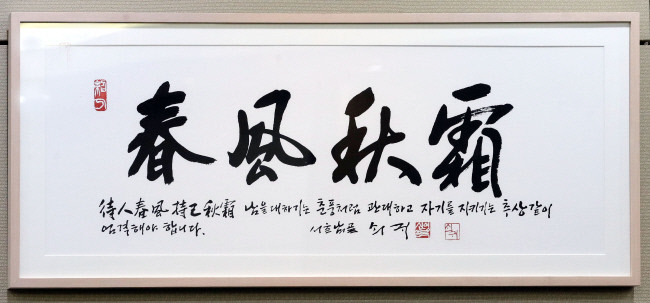 春風秋霜
待人春風 持己秋霜 남을 대하기는 춘풍처럼 관대하고 자기를 지키기는 추상같이
엄격해야 합니다.